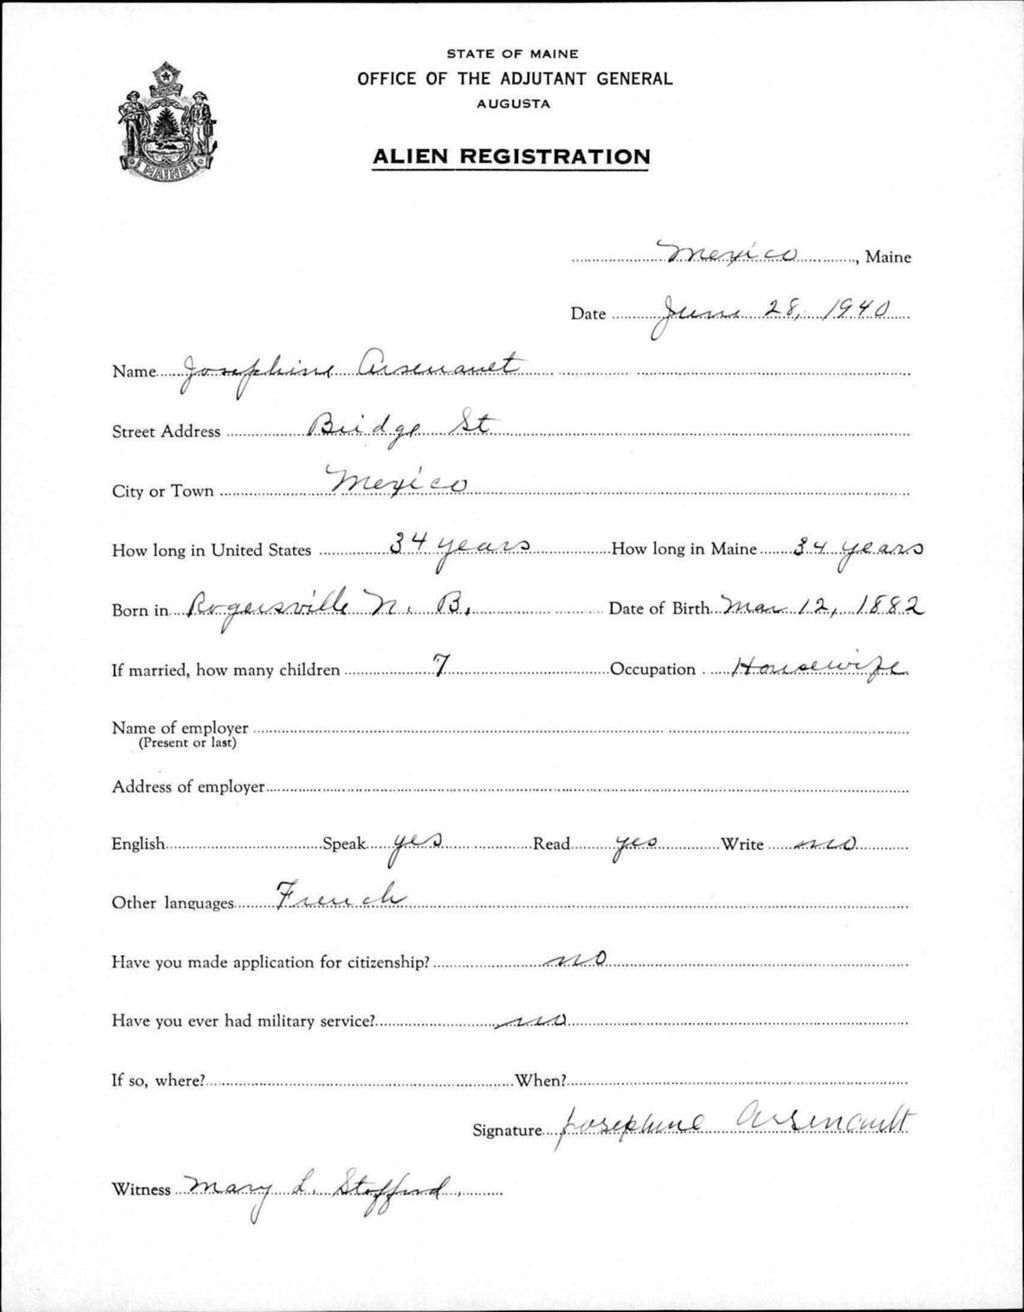 STATE OF MAINE
OFFICE OF THE ADJUTANT GENERAL
AUGUSTA
MAINE
ALIEN REGISTRATION
Mexico, Maine
Date June 28, 1940
Name Josephine Arsenault
Street Address Bridge St
City or Town Mexico
How long in United States 34 years How long in Maine 34 years
Born in Rogersville N. B. Date of Birth Mar 12, 1882
If married, how many children 7 Occupation Housewife
Name of employer
(Present or last)
Address of employer
English Speak yes Read yes Write no
Other languages French
Have you made application for citizenship? no
Have you ever had military service? no
If so, where? When?
Signature Josephine Arsenault
Witness Mary L. Stafford